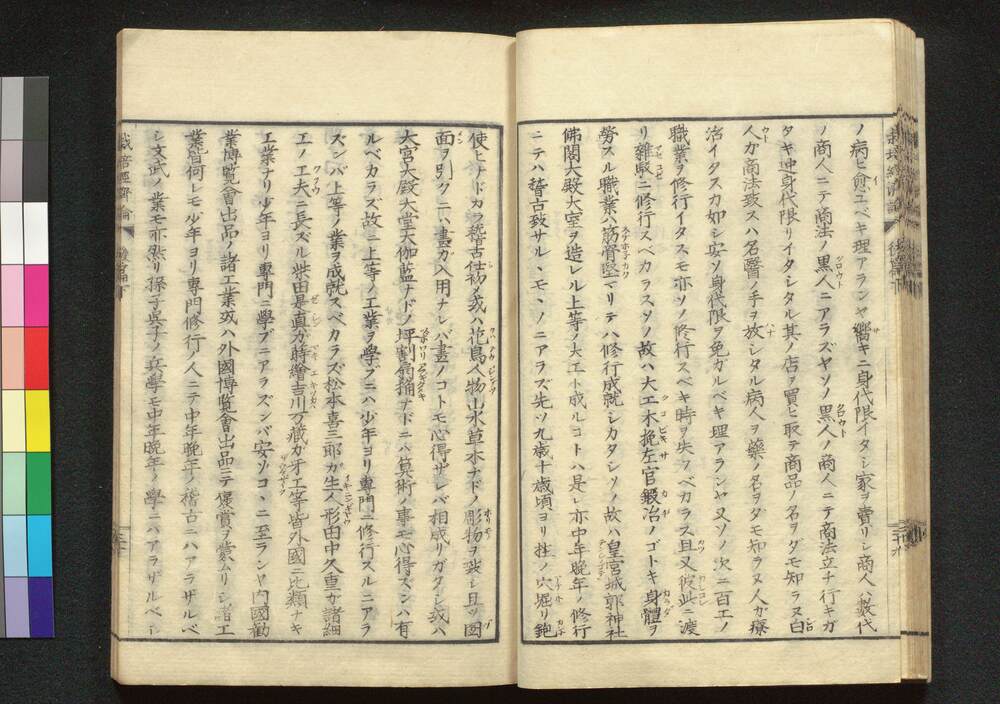 ノ病ヒ愈ユベキ理アランヤ嚮キニ身代限イタシ家ヲ賣リシ商人ハ數代
ノ商人ニテ商法ノ黒人ニアラズヤソノ黒人ノ商人ニテ商法立チ行キガ
タキ迚身代限リイタシタル其ノ店ヲ買ヒ取テ商品ノ名ヲダモ知ラヌ白
人カ商法致スハ名醫ノ手ヲ放シタル病人ヲ藥ノ名ヲダモ知ラヌ人カ療
治イタスカ如シ安ソ身代限ヲ免ガルベキ理アランヤ又ソノ次ニ百工ノ
職業ヲ修行イタスモ亦ソノ修行スベキ時ヲ失フベカラス且又彼此ニ渡
リ雜駁ニ修行スベカラスソノ故ハ大工木挽左官鍛冶ノゴトキ身體ヲ
勞スル職業ハ筋骨堅マリテハ修行成就シカタシソノ故ハ皇宮城郭神社
佛閣大殿大室ヲ造レル上等ノ大工ト成ルコトハ是レ亦中年晩年ノ修行
ニテハ稽古致サルヽモノニアラズ先ツ九歳十歳頃ヨリ柱ノ穴堀リ鉋
使ヒナドカラ稽古仕初メ或ハ花鳥人物山水草木ナドノ彫物ヲ致シ且ツ圖
面ヲ引クニハ畫ガ入用ナレバ畫ノコトモ心得ザレバ相成リガタシ或ハ
大宮大殿大堂大伽藍ナドノ坪割扇捅ナドニハ算術ノ事モ心得ズンハ有
ルベカラズ故ニ上等ノ工業ヲ學ブニハ少年ヨリ專門ニ修行スルニアラ
ズンバ上等ノ業ヲ成就スベカラズ松本喜三郎ガ生人形田中久重ガ諸細
工ノ工夫ニ長ズル柴田是真ガ蒔繪吉川万藏ガ牙工等皆外國ニ比類ナキ
工業ナリ少年ヨリ專門ニ學ブニアラズンバ安ゾコヽニ至ランヤ内國勸
業博覧會出品ノ諸工業或ハ外國博覧會出品ニテ褒賞ヲ蒙ムリシ諸工
業皆何レモ少年ヨリ專門修行ノ人ニテ中年晩年ノ稽古ニハアラザルベ
シ文武ノ業モ亦然リ孫子呉子ノ兵學モ中年晩年ノ學ニハアラザルベシ
栽培經濟論